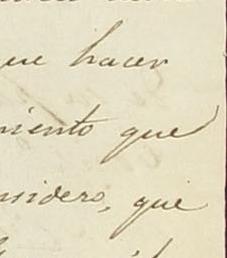 que hacer
miento que
nsidero, que